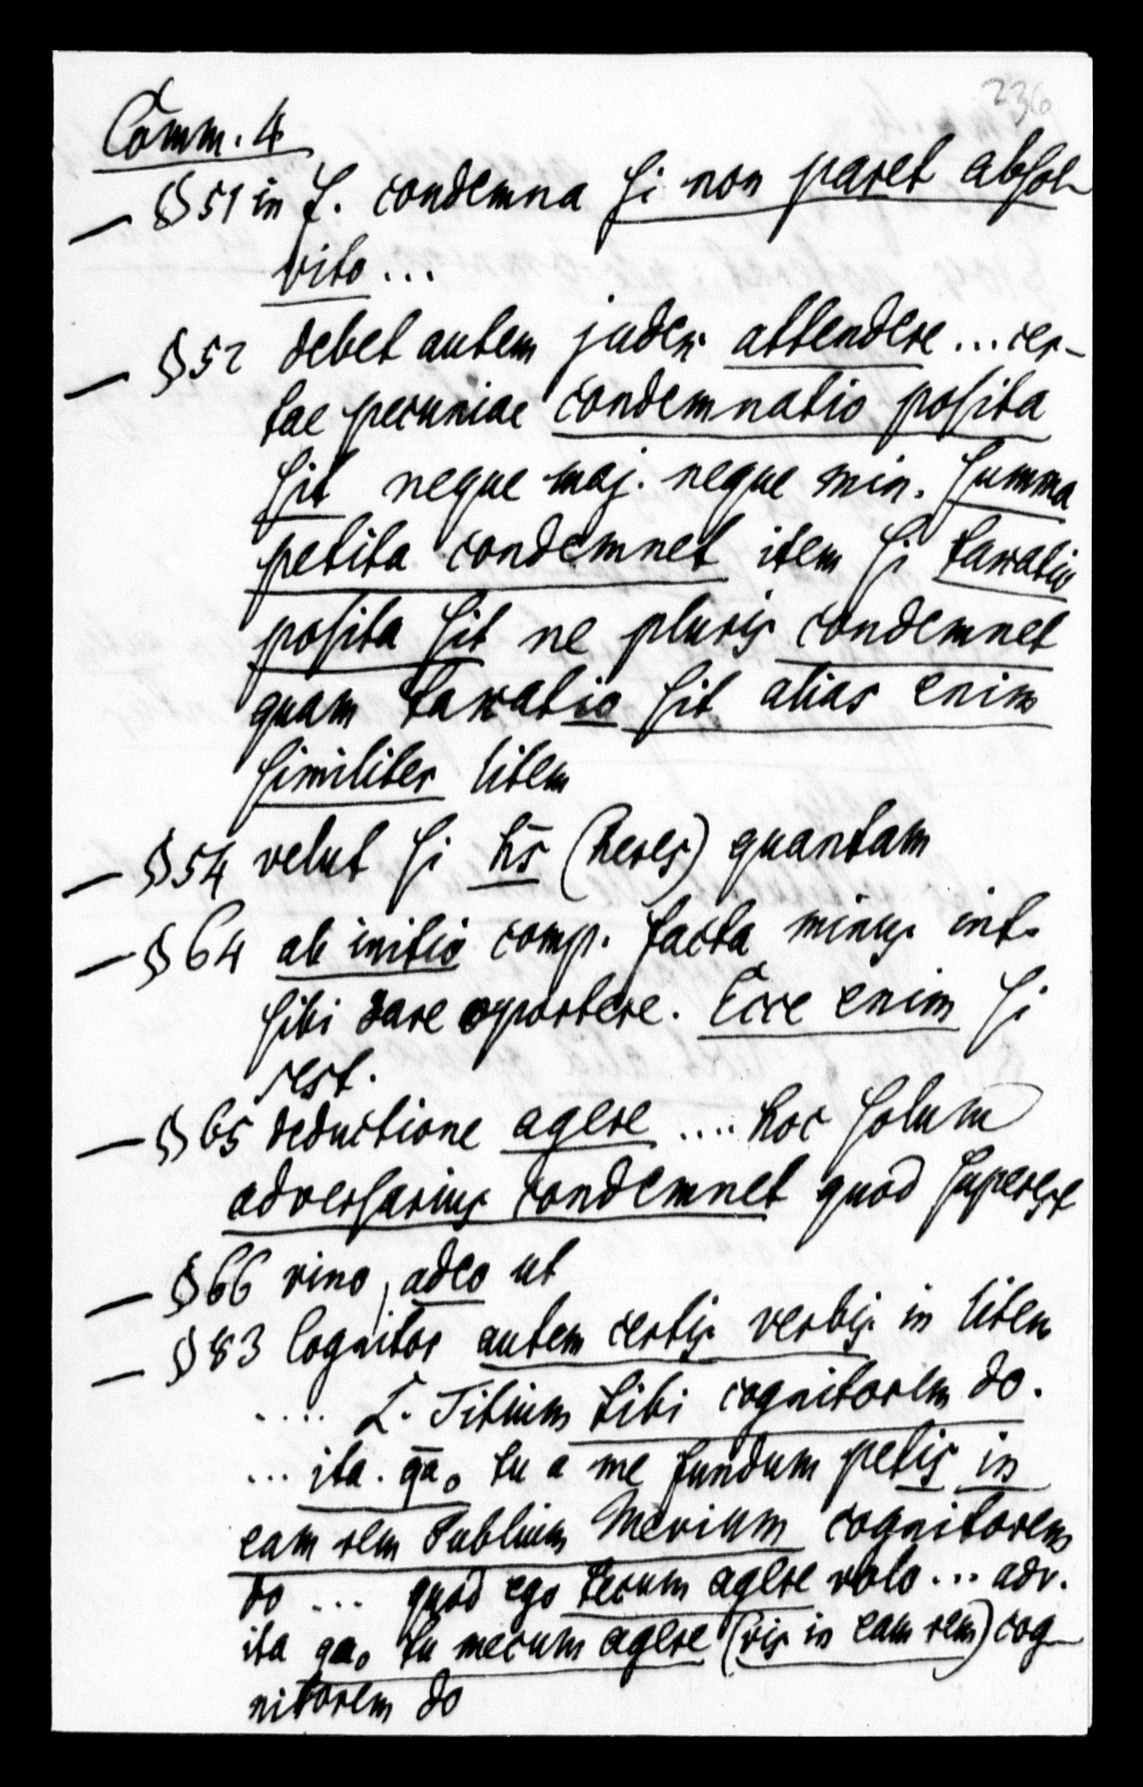 236
Comm. 4
— § 51 in f. condemna si non paret absol-
vito ...
— § 52 debet autem judex attendere ... cer-
tae pecuniae condemnatio posita
sit neque maj. neque min. summa
petita condemnet item si taxatio
posita sit ne pluris condemnet
quam taxatio sit alias enim
similiter litem
— § 54 velut si hs (heres) quantam
— § 64 ab initio comp. facta minus int.
sibi dare oportere. Ecce enim si
sest.
— § 65 deductione agere .... hoc solum
adversarius condemnet quod superesse
— § 66 vino, adeo ut
— § 83 Cognitor autem certis verbis in litem
.... L. Titium tibi cognitorem do.
... ita. qa. tu a me fundum petis in
eam rem Publium Mevium cognitorem
do ... quod ego tecum agere volo ... adv.
ita qa. tu mecum agere (vis in eam rem) cog-
nitorem do